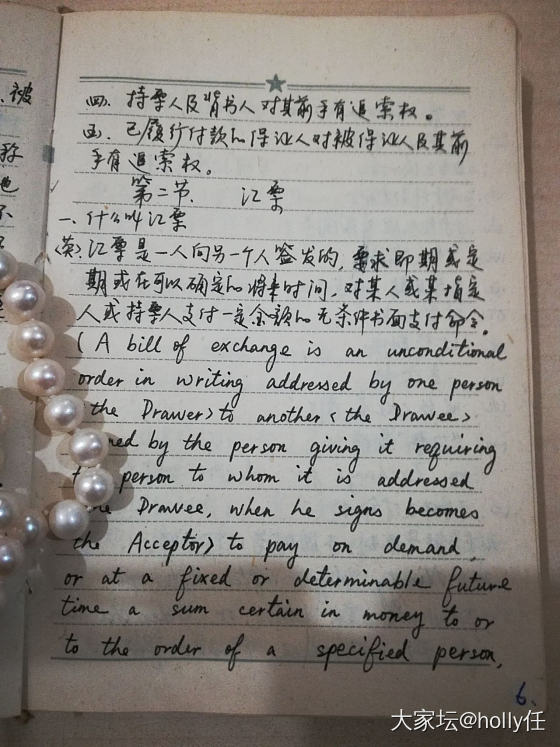 四、持票人及背书人对其前手有追索权。
五、已履行付款的保证人对被保证人及其前
手有追索权。
第二节 汇票
一、什么叫汇票
(英)汇票是一人向另一个人签发的,要求即期或定
期或在可以确定的将来时间,对某人或某指定
人或持票人支付一定金额的无条件书面支付命令。
(A bill of exchange is an unconditional
order in writing addressed by one person
the Drawer> to another <the Drawee>
by the person giving it requiring
person to whom it is addressed
Drawee, when he signs becomes
the Acceptor> to pay on demand,
or at a fixed or determinable future
time a sum certain in money to or
to the order of a specified person,
6.
被
称
也
不
大家坛@holly任